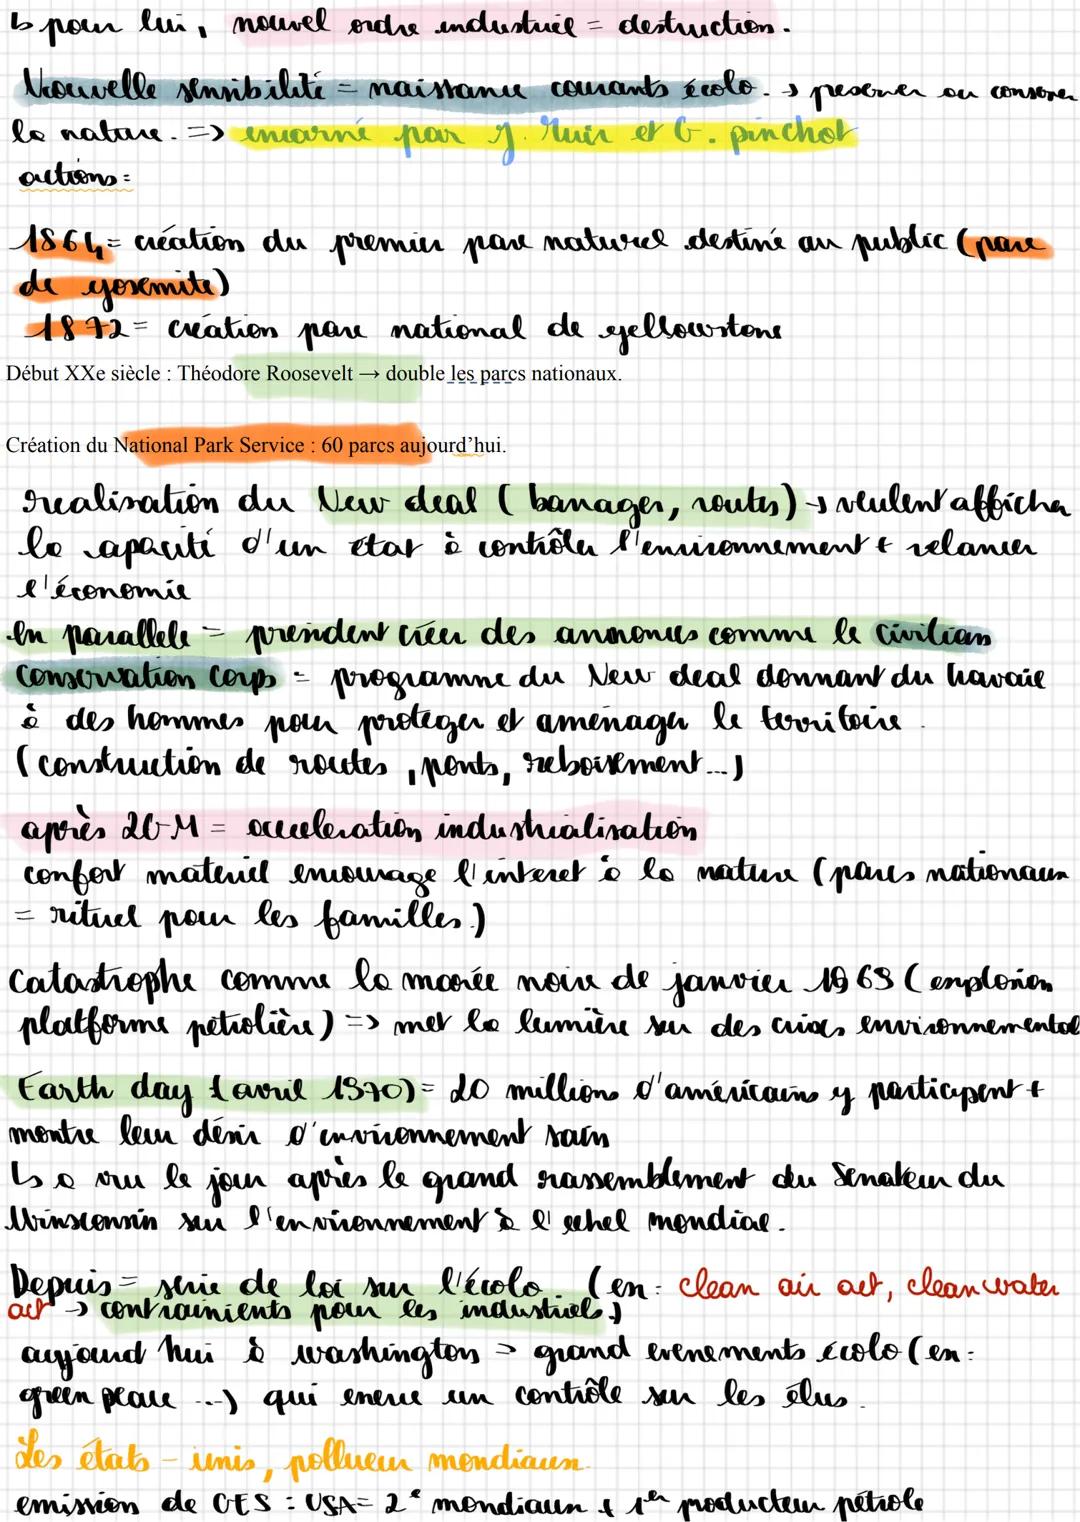 ↳ pour lui, nouvel ordre industriel = destruction.
Nouvelle sensibilité = naissance courants écolo. → préserver ou conserver
la nature. => incarné par J. Muir et G. pinchot
actions :
1864 = création du premier parc naturel destiné au public (parc
de yosemite)
1872 = création parc national de yellowstone
Début XXe siècle : Théodore Roosevelt → double les parcs nationaux.
Création du National Park Service : 60 parcs aujourd'hui.
realisation du New deal ( barrages, routes) → veulent afficher
la capacité d'un état à contrôler l'environnement + relancer
l'économie
en parallele = président créer des annonces comme le Civilian
Conservation Corps = programme du New deal donnant du travail
à des hommes pour protéger et aménager le territoire.
(construction de routes, ponts, reboisement...)
après 2GM = acceleration industrialisation
confort matériel encourage l'interet à la nature (parcs nationaux
= rituel pour les familles.)
Catastrophe comme la marée noire de janvier 1969 (explosion
platforme pétrolière) => met la lumière sur des crises environnemental
Earth day (avril 1970) = 20 millions d'américains y participent +
montre leur désir d'environnement sain
↳ a vu le jour après le grand rassemblement du Senateur du
Winsconsin sur l'environnement à l'echel mondial.
Depuis = série de loi sur l'écolo (ex : clean air act, clean water
act → contraignients pour les industriels.)
aujourd'hui à washington = grand evenements écolo (ex :
green peace ...) qui exerce un contrôle sur les élus.
Les états-unis, pollueur mondiaux.
emission de GES : USA = 2e mondiaux + 1er producteur pétrole